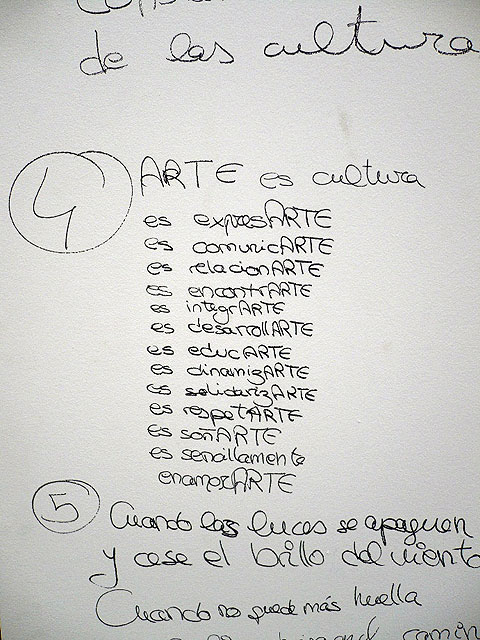 de las cultura
4 ARTE es cultura
es expresARTE
es comunicARTE
es relacionARTE
es encontrARTE
es integrARTE
es desarrollARTE
es educARTE
es dinamizARTE
es solidarizARTE
es respetARTE
es soñARTE
es sencillamente
enamorARTE
5 Cuando las luces se apaguen
y cese el brillo del viento
Cuando no puede más huella